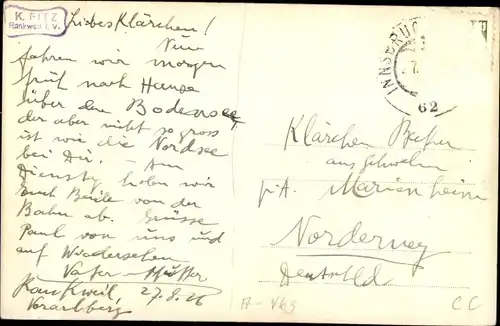 K. FITZ
Rankweil i. V.
Liebes Klärchen!
Nun
fahren wir morgen
früh nach Hause
über den Bodensee,
der aber nicht so gross
ist wie die Nordsee
bei Dir. - Am
Dienstg holen wir
Euch Beide von der
Bahn ab. Grüsse
Paul von uns und
auf Wiedersehen
Vater - Mutter
Rankweil, 27.8.26
Vorarlberg
INNSBRUCK
62
Klärchen
aus
p. A. Marienheim
Norderney
Deutschld
A-V69
CC